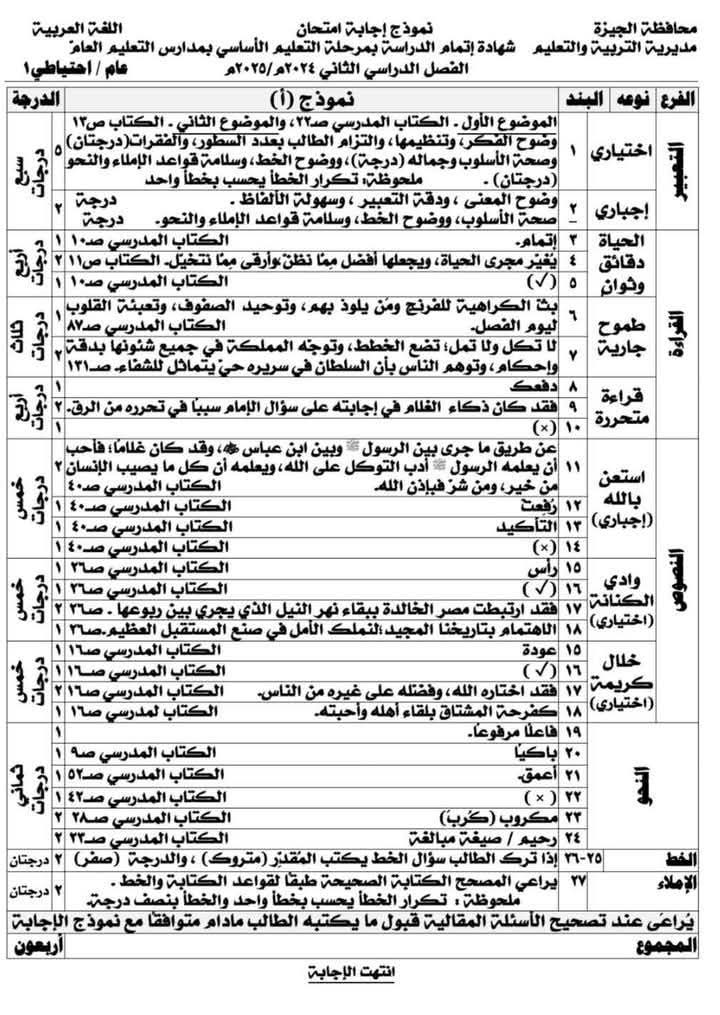 محافظة الجيزة
مديرية التربية والتعليم
نموذج إجابة امتحان
شهادة إتمام الدراسة بمرحلة التعليم الأساسي بمدارس التعليم العام
الفصل الدراسي الثاني ٢٠٢٤م/٢٠٢٥م
اللغة العربية
عام / احتياطي١
الفرع نوعه البند نموذج (أ) الدرجة
التعبير
اختياري ١ الموضوع الأول. الكتاب المدرسي صـ٢٢، والموضوع الثاني. الكتاب ص١٣
وضوح الفكر، وتنظيمها، والتزام الطالب بعدد السطور، والفقرات(درجتان)
وصحة الأسلوب وجماله (درجة)، ووضوح الخط، وسلامة قواعد الإملاء والنحو
(درجتان) . ملحوظة: تكرار الخطأ يحسب بخطأ واحد
٥ سبع درجات
إجباري ٢ وضوح المعنى ، ودقة التعبير ، وسهولة الألفاظ . درجة
صحة الأسلوب، ووضوح الخط، وسلامة قواعد الإملاء والنحو. درجة
٢
القراءة
الحياة دقائق وثوان
٣ إتمام. الكتاب المدرسي صـ١٠ ١ أربع درجات
٤ يغير مجرى الحياة، ويجعلها أفضل مما نظن،وأرقى مما نتخيل. الكتاب ص١١ ٢
٥ (✓) الكتاب المدرسي صـ١٠ ١
طموح جارية
٦ بث الكراهية للفرنج ومن يلوذ بهم، وتوحيد الصفوف، وتعبئة القلوب
ليوم الفصل. الكتاب المدرسي صـ٨٧ ١ ثلاث درجات
٧ لا تكل ولا تمل؛ تضع الخطط، وتوجه المملكة في جميع شئونها بدقة
وإحكام، وتوهم الناس بأن السلطان في سريره حي يتماثل للشفاء. صـ١٣١ ٢
قراءة متحررة
٨ دفعك ١ أربع درجات
٩ فقد كان ذكاء الغلام في إجابته على سؤال الإمام سببًا في تحرره من الرق. ٢
١٠ (×) ١
النصوص
استعن بالله (إجباري)
١١ عن طريق ما جرى بين الرسول ﷺ وبين ابن عباس ، وقد كان غلامًا؛ فأحب
أن يعلمه الرسول ﷺ أدب التوكل على الله، ويعلمه أن كل ما يصيب الإنسان
من خير، ومن شر فبإذن الله. الكتاب المدرسي صـ٤٠ ٢ خمس درجات
١٢ رُفِعت الكتاب المدرسي صـ٤٠ ١
١٣ التأكيد الكتاب المدرسي صـ٤٠ ١
١٤ (×) الكتاب المدرسي صـ٤٠ ١
وادي الكنانة (اختياري)
١٥ رأس الكتاب المدرسي صـ٢٦ ١ خمس درجات
١٦ (✓) الكتاب المدرسي صـ٢٦ ١
١٧ فقد ارتبطت مصر الخالدة ببقاء نهر النيل الذي يجري بين ربوعها . صـ٢٦ ٢
١٨ الاهتمام بتاريخنا المجيد؛لنملك الأمل في صنع المستقبل العظيم.صـ٢٦ ١
خلال كريمة (اختياري)
١٥ عودة الكتاب المدرسي صـ١٦ ١ خمس درجات
١٦ (✓) الكتاب المدرسي صـ١٦ ١
١٧ فقد اختاره الله، وفضله على غيره من الناس. الكتاب المدرسي صـ١٦ ٢
١٨ كفرحة المشتاق بلقاء أهله وأحبته. الكتاب لمدرسي صـ١٦ ١
النحو
١٩ فاعلًا مرفوعًا. ١ ثماني درجات
٢٠ باكيًا الكتاب المدرسي صـ٩ ١
٢١ أعمق. الكتاب المدرسي صـ٥٢ ١
٢٢ (×) الكتاب المدرسي صـ٤٢ ١
٢٣ مكروب (كُرِبَ) الكتاب المدرسي صـ٢٨ ٢
٢٤ رحيم / صيغة مبالغة الكتاب المدرسي صـ٢٣ ٢
الخط ٢٥-٢٦ إذا ترك الطالب سؤال الخط يكتب المُقدِّر (متروك) ، والدرجة (صفر) ٢ درجتان
الإملاء ٢٧ يراعي المصحح الكتابة الصحيحة طبقًا لقواعد الكتابة والخط .
ملحوظة : تكرار الخطأ يحسب بخطأ واحد والخطأ بنصف درجة. ٢ درجتان
يُراعَى عند تصحيح الأسئلة المقالية قبول ما يكتبه الطالب مادام متوافقًا مع نموذج الإجابة
المجموع أربعون
انتهت الإجابة